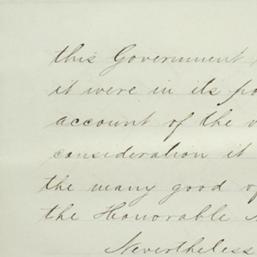 this Government
it were in its
account of the
consideration it
the many good
the Honorable
Nevertheless